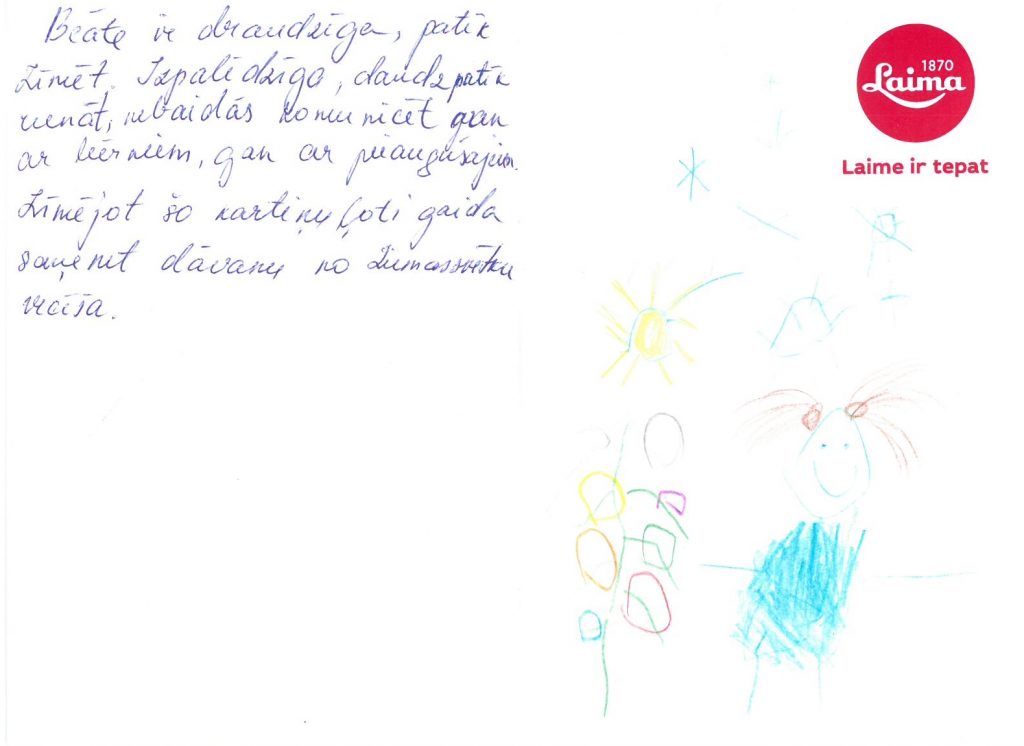 Beāte ir draudzīga, patīk
zīmēt. Izpalīdzīga, daudz patīk
runāt, nebaidās komunicēt gan
ar bērniem, gan ar pieaugušajiem.
Zīmējot šo kartiņu ļoti gaida
saņemt dāvanu no Ziemassvētku
vecīša.
1870
Laima
Laime ir tepat